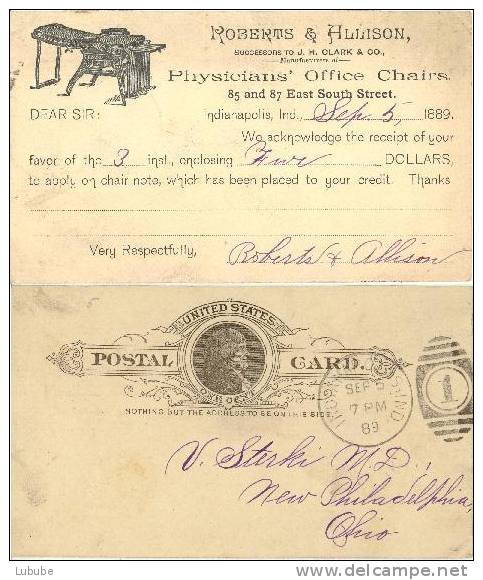 ROBERTS & ALLISON,
SUCCESSORS TO J. H. CLARK & CO.,
Manufacturers of
PHYSICIANS' OFFICE CHAIRS.
85 and 87 East South Street.
DEAR SIR:
Indianapolis, Ind., Sep. 5, 1889.
We acknowledge the receipt of your
favor of the 3 inst., enclosing Five DOLLARS,
to apply on chair note, which has been placed to your credit. Thanks
Very Respectfully, Roberts & Allison
UNITED STATES
POSTAL CARD.
ONE CENT
NOTHING BUT THE ADDRESS TO BE ON THIS SIDE.
SEP 5
7 PM
89
IND
1
V. Sterki M.D.,
New Philadelphia,
Ohio
Lubube
delcampe.net